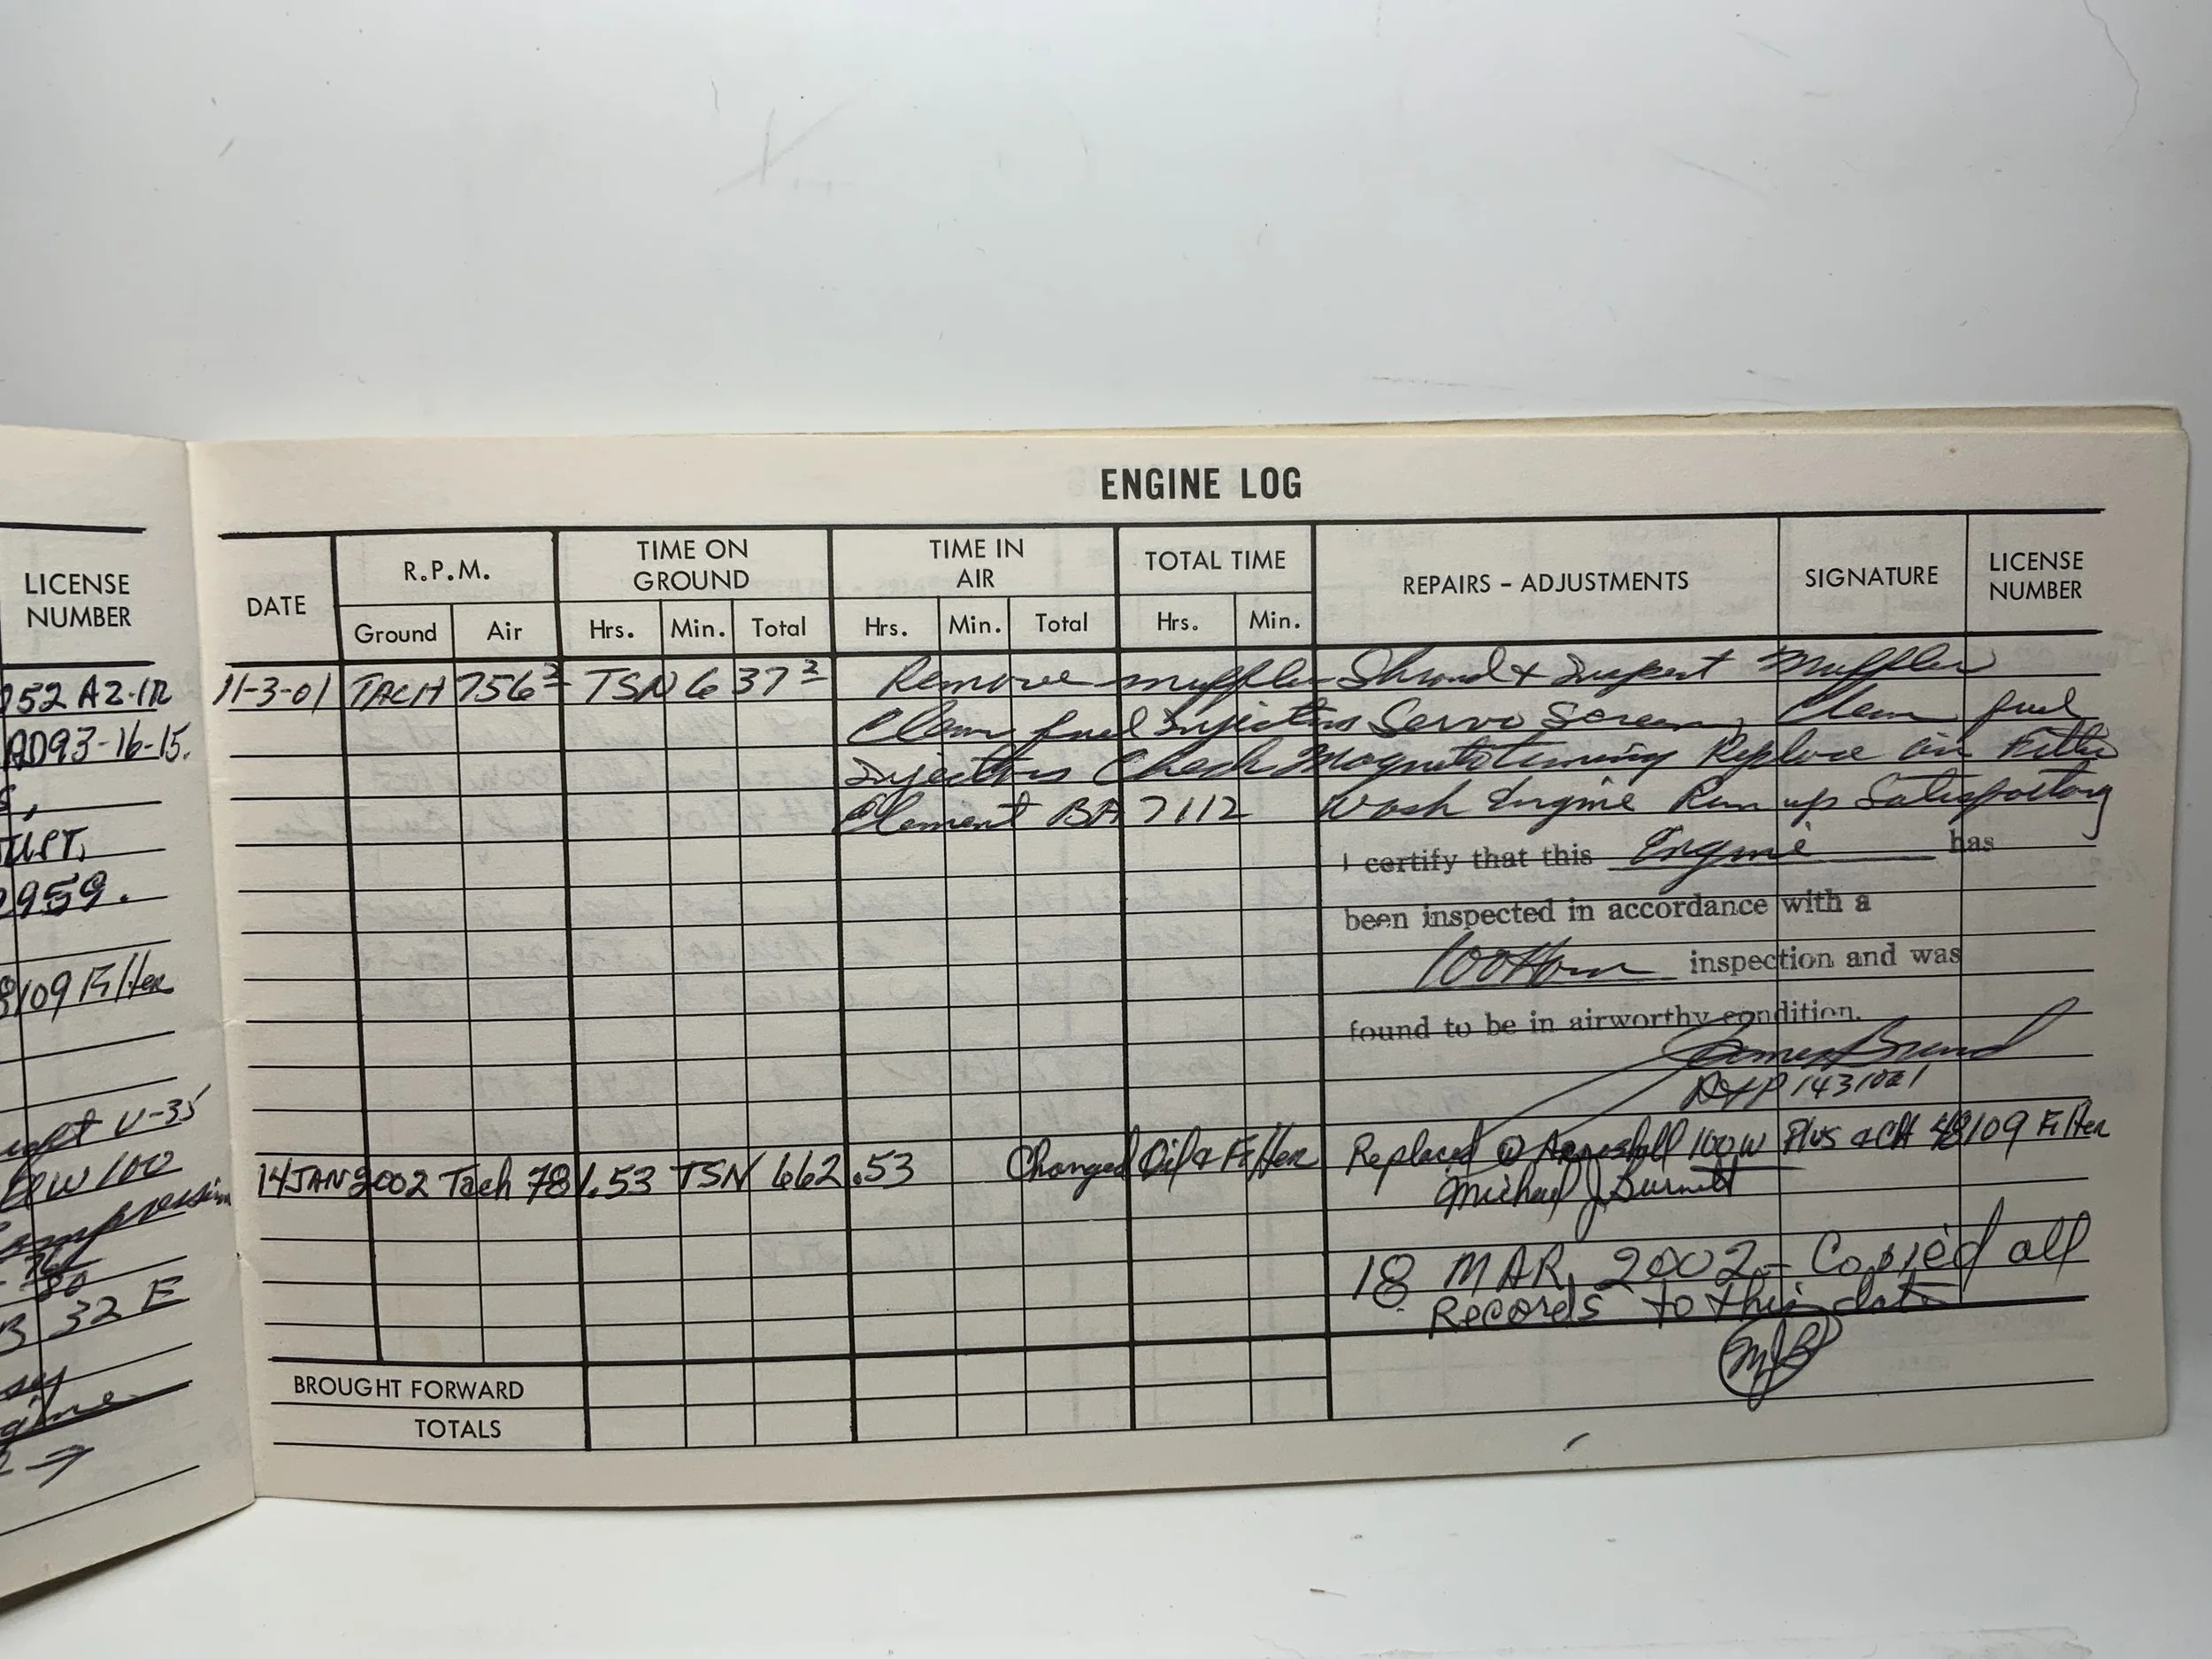 LICENSE
NUMBER
952 A2-1R
AD93-16-15.
2959.
8109 Filter
U-35
W 100
Compression
80
B 32 E
ENGINE LOG
DATE R.P.M. TIME ON GROUND TIME IN AIR TOTAL TIME REPAIRS - ADJUSTMENTS SIGNATURE LICENSE NUMBER
Ground Air Hrs. Min. Total Hrs. Min. Total Hrs. Min.
11-3-01 TACH 756³ TSN 637³ Remove muffler Shroud & Inspect Muffler
Clean fuel Injection Servo Screen, Clean fuel
Injectors Check Magneto timing Replace air Filter
Element BA 7112 Wash Engine Run up Satisfactory
I certify that this Engine has
been inspected in accordance with a
100 Hour inspection and was
found to be in airworthy condition.
A&P 1431021
14 JAN 2002 Tach 781.53 TSN 662.53 Changed Oil & Filter Replaced @ Aeroshell 100W Plus & CH 48109 Filter
Michael J. Burnett
18 MAR, 2002 - Copied all
Records to this date
MJB
BROUGHT FORWARD
TOTALS